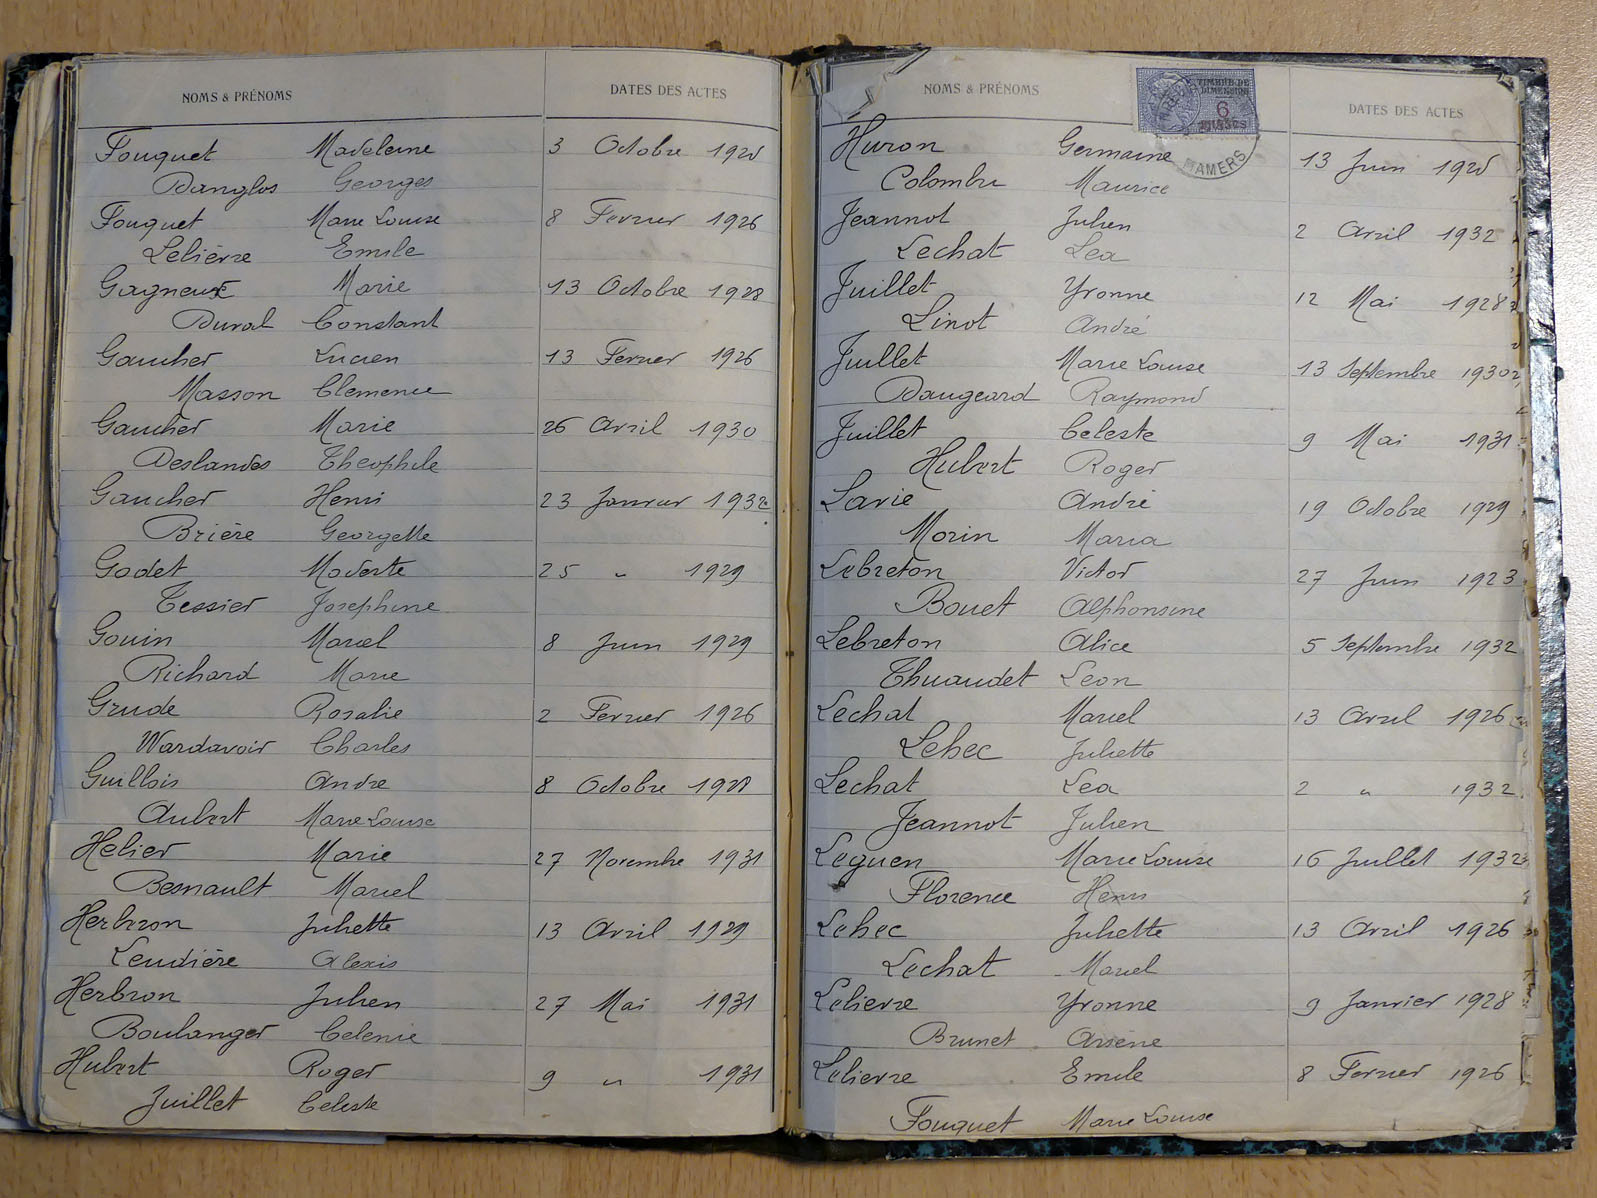 NOMS & PRÉNOMS DATES DES ACTES
Fouquet Madeleine 3 Octobre 1925
Danglos Georges
Fouquet Marie Louise 8 Fevrier 1926
Lelièvre Emile
Gagneux Marie 13 Octobre 1928
Duval Constant
Gaucher Lucien 13 Fevrier 1926
Masson Clemence
Gaucher Marie 26 Avril 1930
Deslandes Theophile
Gaucher Henri 23 Janvier 1932
Brière Georgette
Godet Modeste 25 " 1929
Tessier Josephine
Gouin Marcel 8 Juin 1929
Richard Marie
Grude Rosalie 2 Fevrier 1926
Wardavoir Charles
Guillois Andre 8 Octobre 1928
Aubert Marie Louise
Helier Marie 27 Novembre 1931
Besnault Marcel
Herbron Juliette 13 Avril 1929
Leudière Alexis
Herbron Julien 27 Mai 1931
Boulanger Celenie
Hubert Roger 9 " 1931
Juillet Celeste
NOMS & PRÉNOMS DATES DES ACTES
TIMBRE DE
DIMENSION
6
FRANCS
MAMERS
Huron Germaine 13 Juin 1925
Colombu Maurice
Jeannot Julien 2 Avril 1932
Lechat Lea
Juillet Yvonne 12 Mai 1928
Linot André
Juillet Marie Louise 13 Septembre 1930
Daugeard Raymond
Juillet Celeste 9 Mai 1931
Hubert Roger
Lavie André 19 Octobre 1929
Morin Maria
Lebreton Victor 27 Juin 1923
Bouet Alphonsine
Lebreton Alice 5 Septembre 1932
Thuaudet Leon
Lechat Marcel 13 Avril 1926
Lehec Juliette
Lechat Lea 2 " 1932
Jeannot Julien
Leguen Marie Louise 16 Juillet 1932
Florence Henri
Lehec Juliette 13 Avril 1926
Lechat Marcel
Lelievre Yvonne 9 Janvier 1928
Brunet Arsène
Lelievre Emile 8 Fevrier 1926
Fouquet Marie Louise